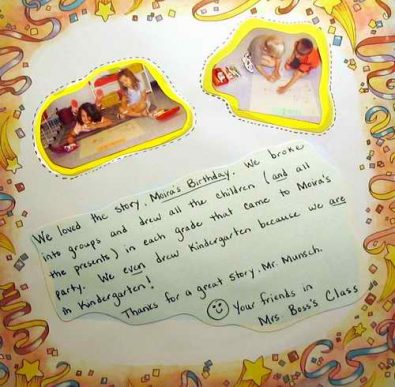 We loved the story, Moira's Birthday. We broke
into groups and drew all the children (and all
the presents) in each grade that came to Moira's
party. We even drew Kindergarten because we are
in Kindergarten!
Thanks for a great story, Mr. Munsch.
Your friends in
Mrs. Boss's Class